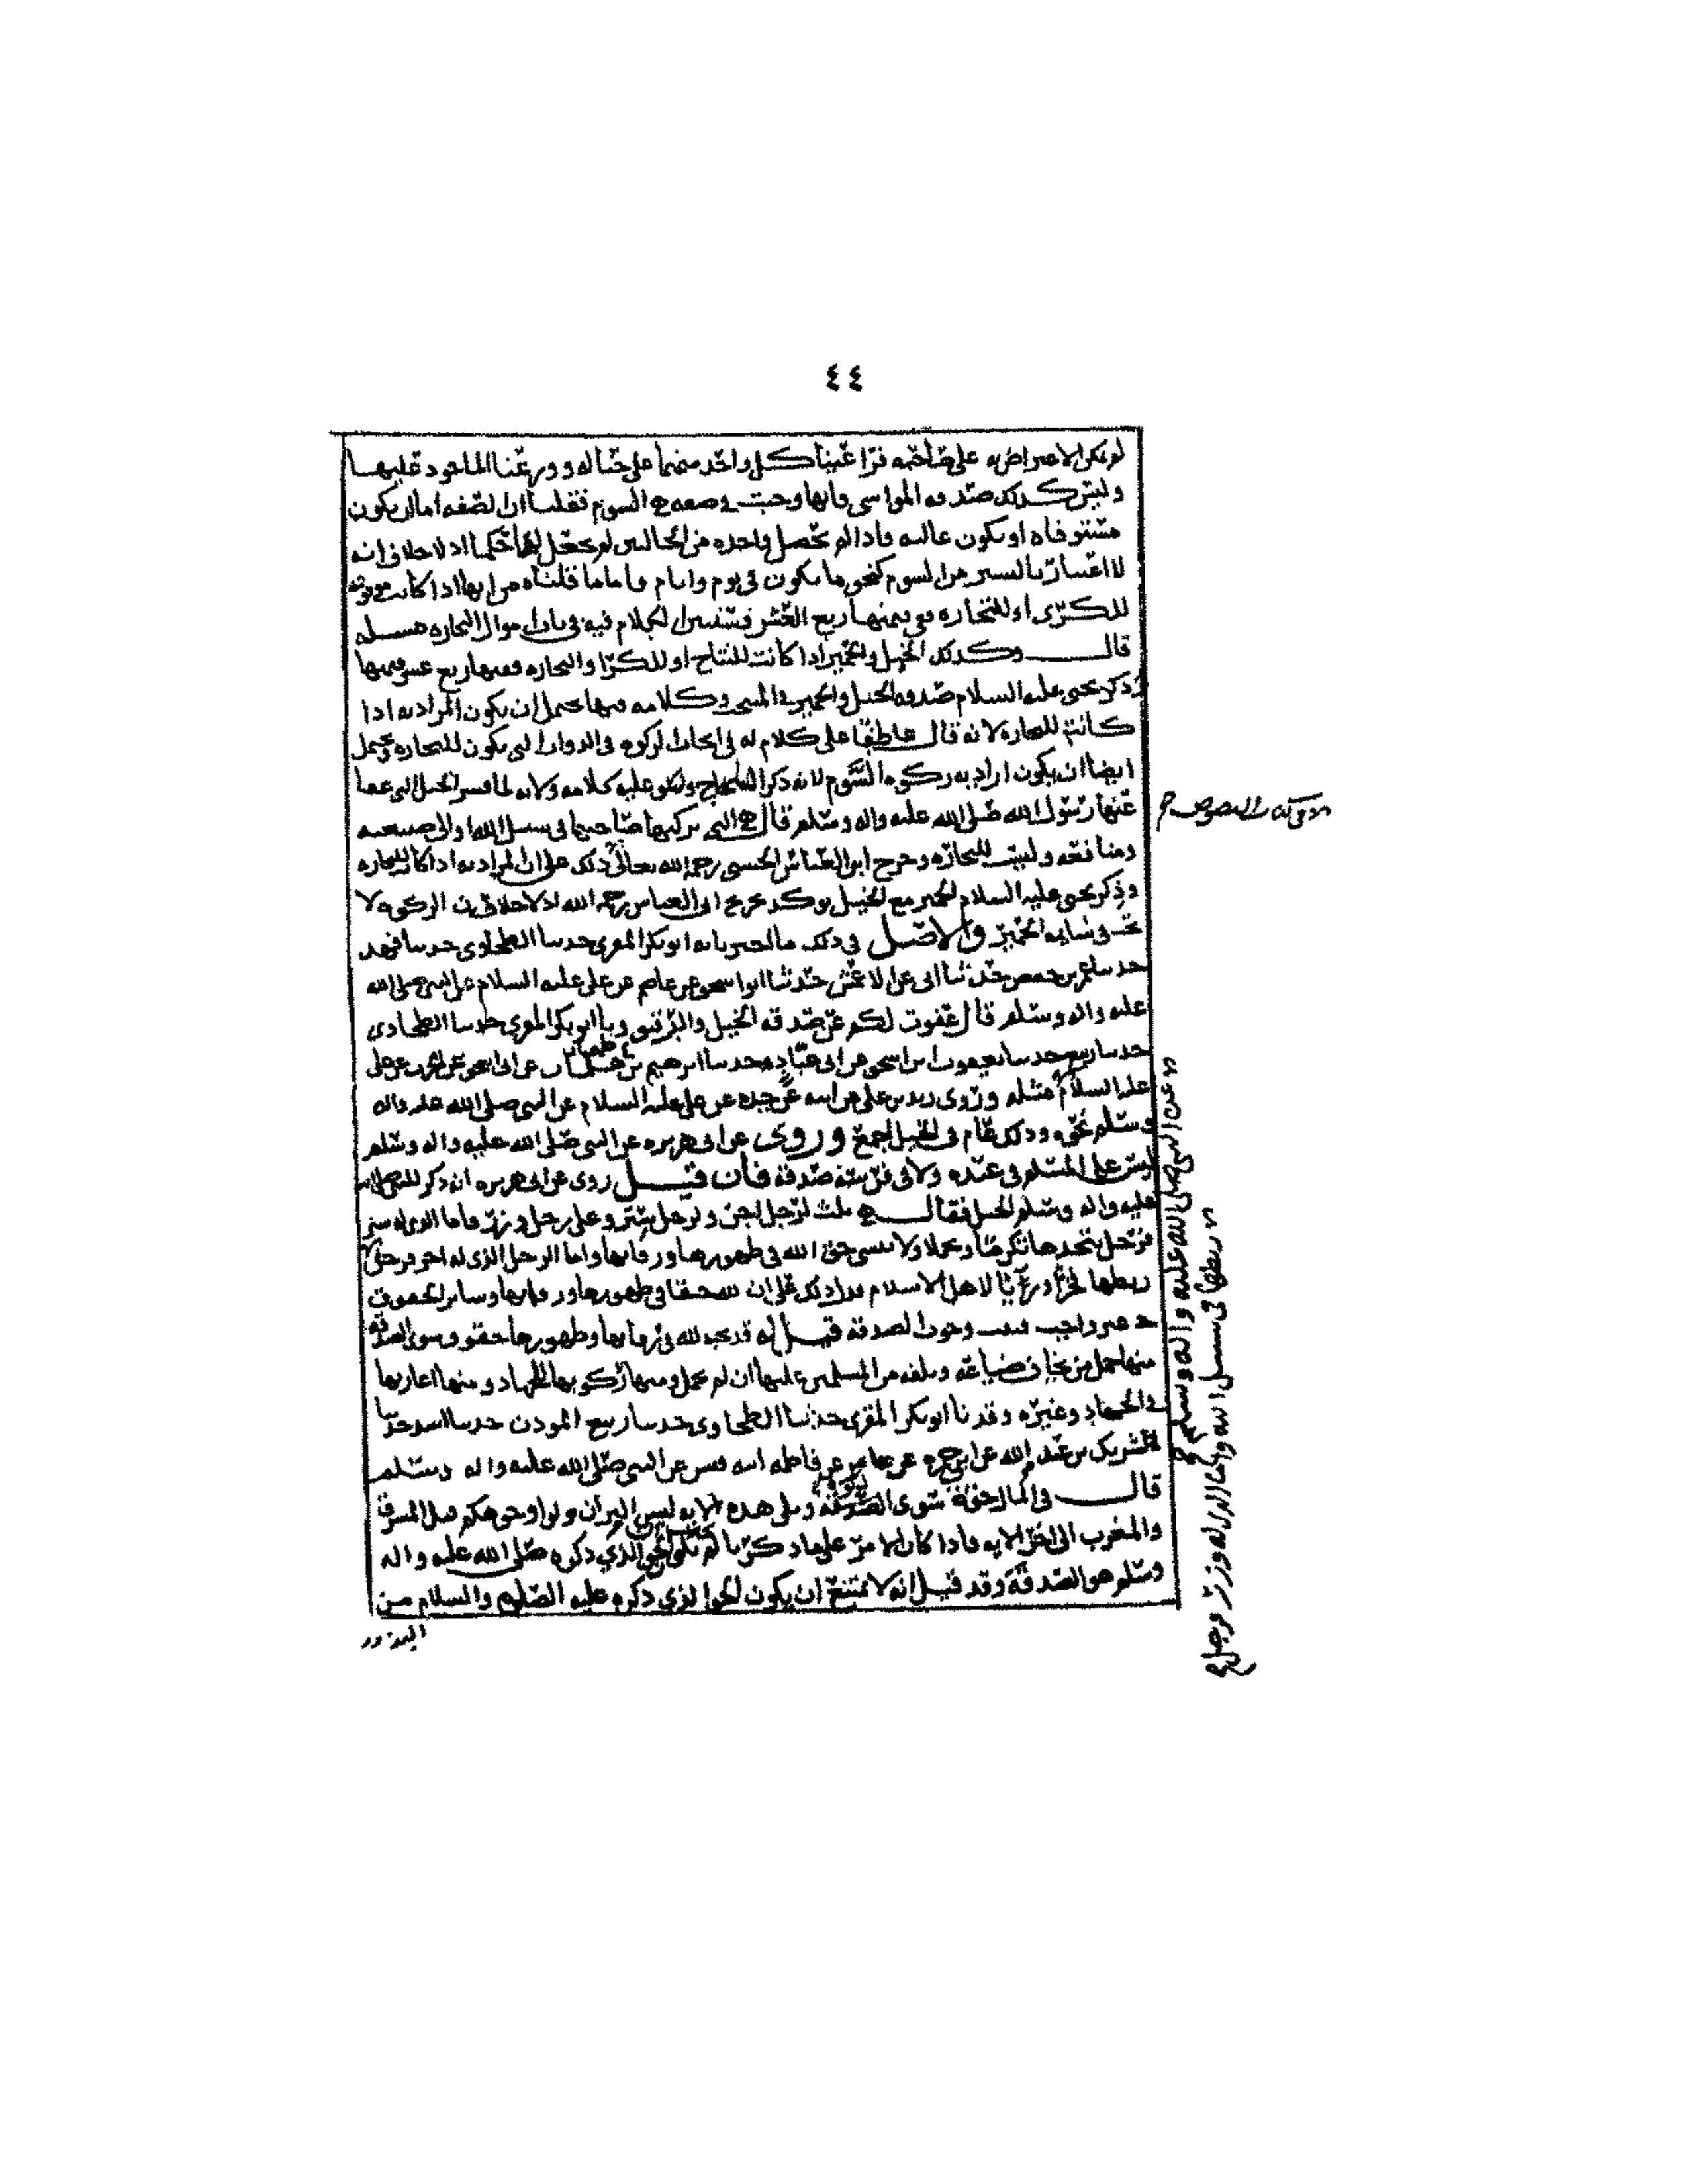 ٤٤
لم يكن الاعتراض به على صاحبه فراعينا كل واحد منهما على حياله وورعنا الماخود عليهما
وليس كذلك صدقه المواشي فانها وجبت وصعه هي السوم فقلنا ان الصفه اما ان يكون
مستوفاه او يكون غالبه فاذا لم تحصل واحده من الحالين لم يحصل لها حكمها اذ لا خلاف انه
لا اعتبار باليسير من السوم كنحو ما يكون في يوم وايام واما ما قلناه من انها اذا كانت
للكرى او للتجاره ففي قيمتها ربع العشر فسنبين الكلام فيه في باب اموال التجاره مسله
قال وكذلك الخيل والحمير اذا كانت للنتاج او للكرا والتجاره ففيها ربع عشر قيمتها
ذكر يحيى عليه السلام صدقه الخيل والحمير في وكلامه فيها يحتمل ان يكون المراد به اذا
كانت للتجاره لانه قال عاطفا على كلام له في ايجاب الزكوه في الدواب التي يكون للتجاره ويحتمل
ايضا ان يكون اراد به زكوه السوم لانه ذكر النتاج ولتلو عليه كلامه ولانه لما فسر الخيل التي عفا
عنها رسول الله صلى الله عليه واله وسلم قال هي التي يركبها صاحبها في سبيل الله او في صنيعته
ومنافعه وليست للتجاره وخرج ابو العباس الحسني رحمه الله تعالى ذلك على ان المراد به اذا كان للتجاره
وذكر يحيى عليه السلام الحمير مع الخيل يوكد تخريج ابي العباس رحمه الله اذ لا خلاف ان الزكوه لا
تجب في سايمه الحمير والاصل في ذلك ما اخبرنا به ابو بكر المقري حدثنا الطحاوي حدثنا فهد
حدثنا عمر بن حفص حدثنا ابي عن الاعمش حدثنا ابو اسحق عن عاصم عن علي عليه السلام عن النبي صلى الله
عليه واله وسلم قال عفوت لكم عن صدقه الخيل والرقيق وبا ابو بكر المقري حدثنا الطحاوي
حدثنا ربيع حدثنا يعقوب ابن اسحق عن ابي عباد حدثنا ابرهيم بن طهمان عن ابي اسحق عن الحرث عن علي
عليه السلام مثله وروى زيد بن علي عن ابيه عن جده عن علي عليه السلام عن النبي صلى الله عليه واله
وسلم نحوه وذلك عام في الخيل اجمع وروي عن ابي هريره عن النبي صلى الله عليه واله وسلم
ليس على المسلم في عبده ولا في فرسه صدقة فان قيل روى عن ابي هريره انه ذكر للنبي صلى الله
عليه واله وسلم الخيل فقال هي ثلث لرجل اجر ولرجل ستر وعلى رجل وزر فاما الذي له ستر
فرجل يتخذها تكرما وتجملا ولا ينسى حق الله في ظهورها ورقابها واما الرجل الذي له اجر فرجل
ربطها فخرا ورياا لاهل الاسلام فدل ذلك على ان لله حقا في ظهورها ورقابها وساير الحقوق
غير واجب فثبت وجوب الصدقه قيل له قد يجب لله في رقابها وظهورها حقوق سوى الصدقه
منها حمل من يخاف ضياعه وتلفه من المسلمين عليها ان لم يحمل ومنها ركوبها للجهاد ومنها اعارتها
في الجهاد وغيره وقد نا ابو بكر المقري حدثنا الطحاوي حدثنا ربيع الموذن حدثنا اسد حدثنا
شريك بن عبد الله عن ابي حمزه عن عامر عن فاطمه ابنه قيس عن النبي صلى الله عليه واله وسلم
قال في المال حق سوى الصدقه وتلى هذه الايه ليس البر ان تولوا وجوهكم قبل المشرق
والمغرب الى اخر الايه فاذا كان الامر على ما ذكرنا لم يكن الحق الذي ذكره صلى الله عليه واله
وسلم هو الصدقه وقد قيل انه لا يمتنع ان يكون الحق الذي ذكره عليه الصلوه والسلام من
عن النبي صلى الله عليه واله وسلم
ربطها في سبيل الله واما الذي له وزر فرجل